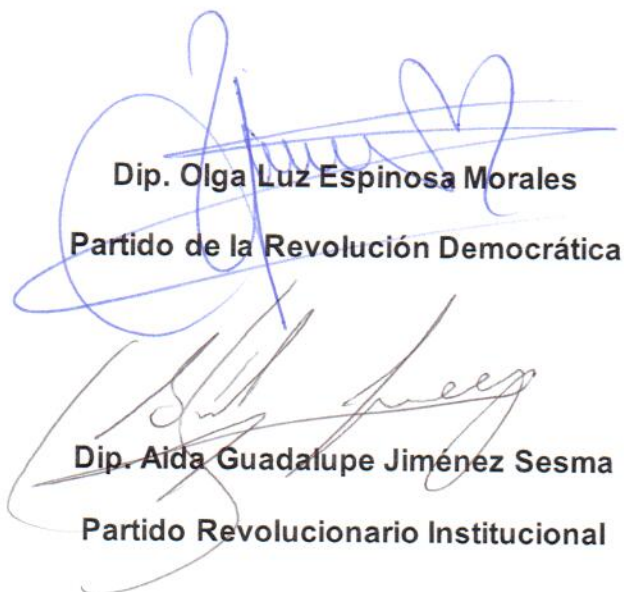 Dip. Olga Luz Espinosa Morales
Partido de la Revolución Democrática
Dip. Aida Guadalupe Jiménez Sesma
Partido Revolucionario Institucional